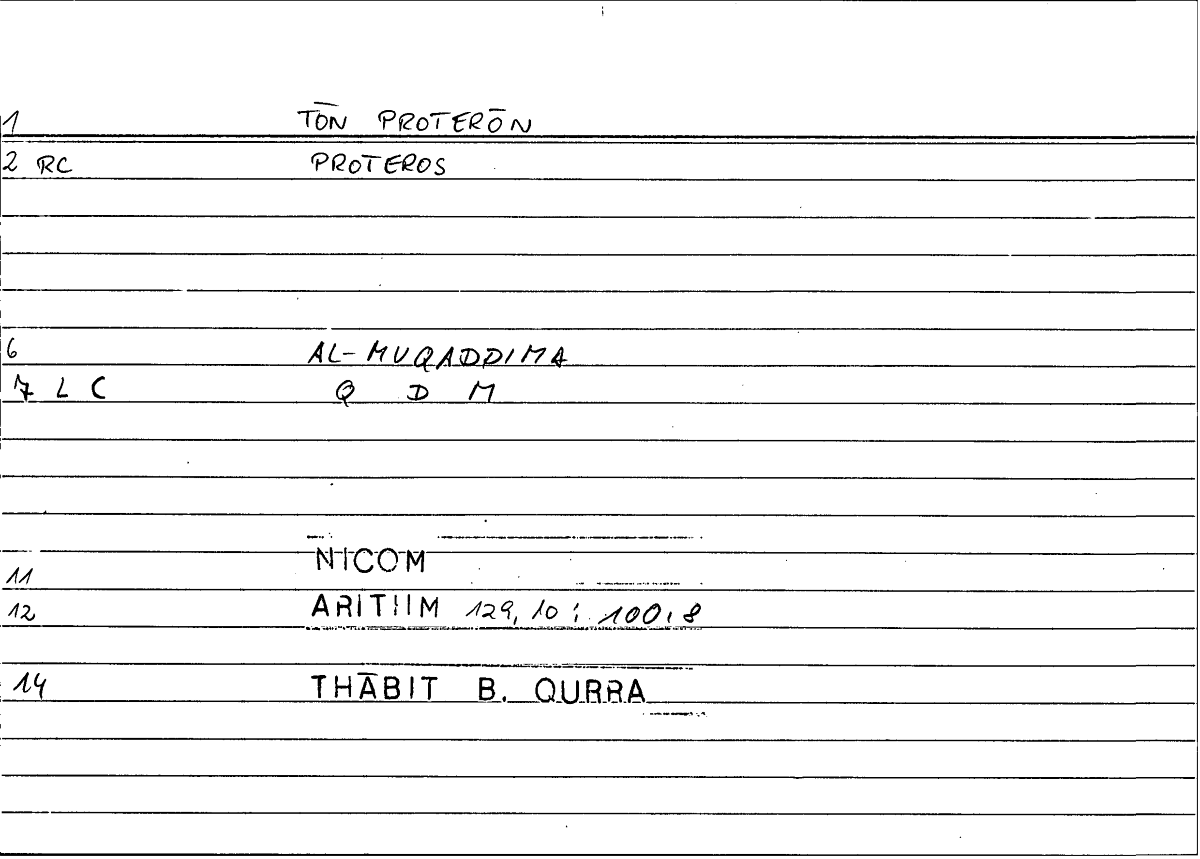 1 TŌN PROTERŌN
2 RC PROTEROS
6 AL-MUQADDIMA
7 L C Q D M
NICOM
11
12 ARITHM 129, 10 ; 100,8
14 THĀBIT B. QURRA